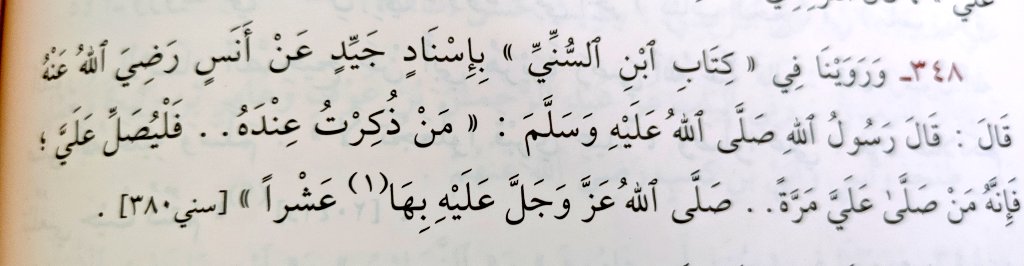 ٣٤٨ـ وَرَوَيْنَا فِي « كِتَابِ ٱبْنِ ٱلسُّنِّيِّ » بِإِسْنَادٍ جَيِّدٍ عَنْ أَنَسٍ رَضِيَ ٱللهُ عَنْهُ
قَالَ : قَالَ رَسُولُ ٱللهِ صَلَّى ٱللهُ عَلَيْهِ وَسَلَّمَ : « مَنْ ذُكِرْتُ عِنْدَهُ . . فَلْيُصَلِّ عَلَيَّ ؛
فَإِنَّهُ مَنْ صَلَّىٰ عَلَيَّ مَرَّةً . . صَلَّى ٱللهُ عَزَّ وَجَلَّ عَلَيْهِ بِهَا(١) عَشْراً » [سني٣٨٠] .